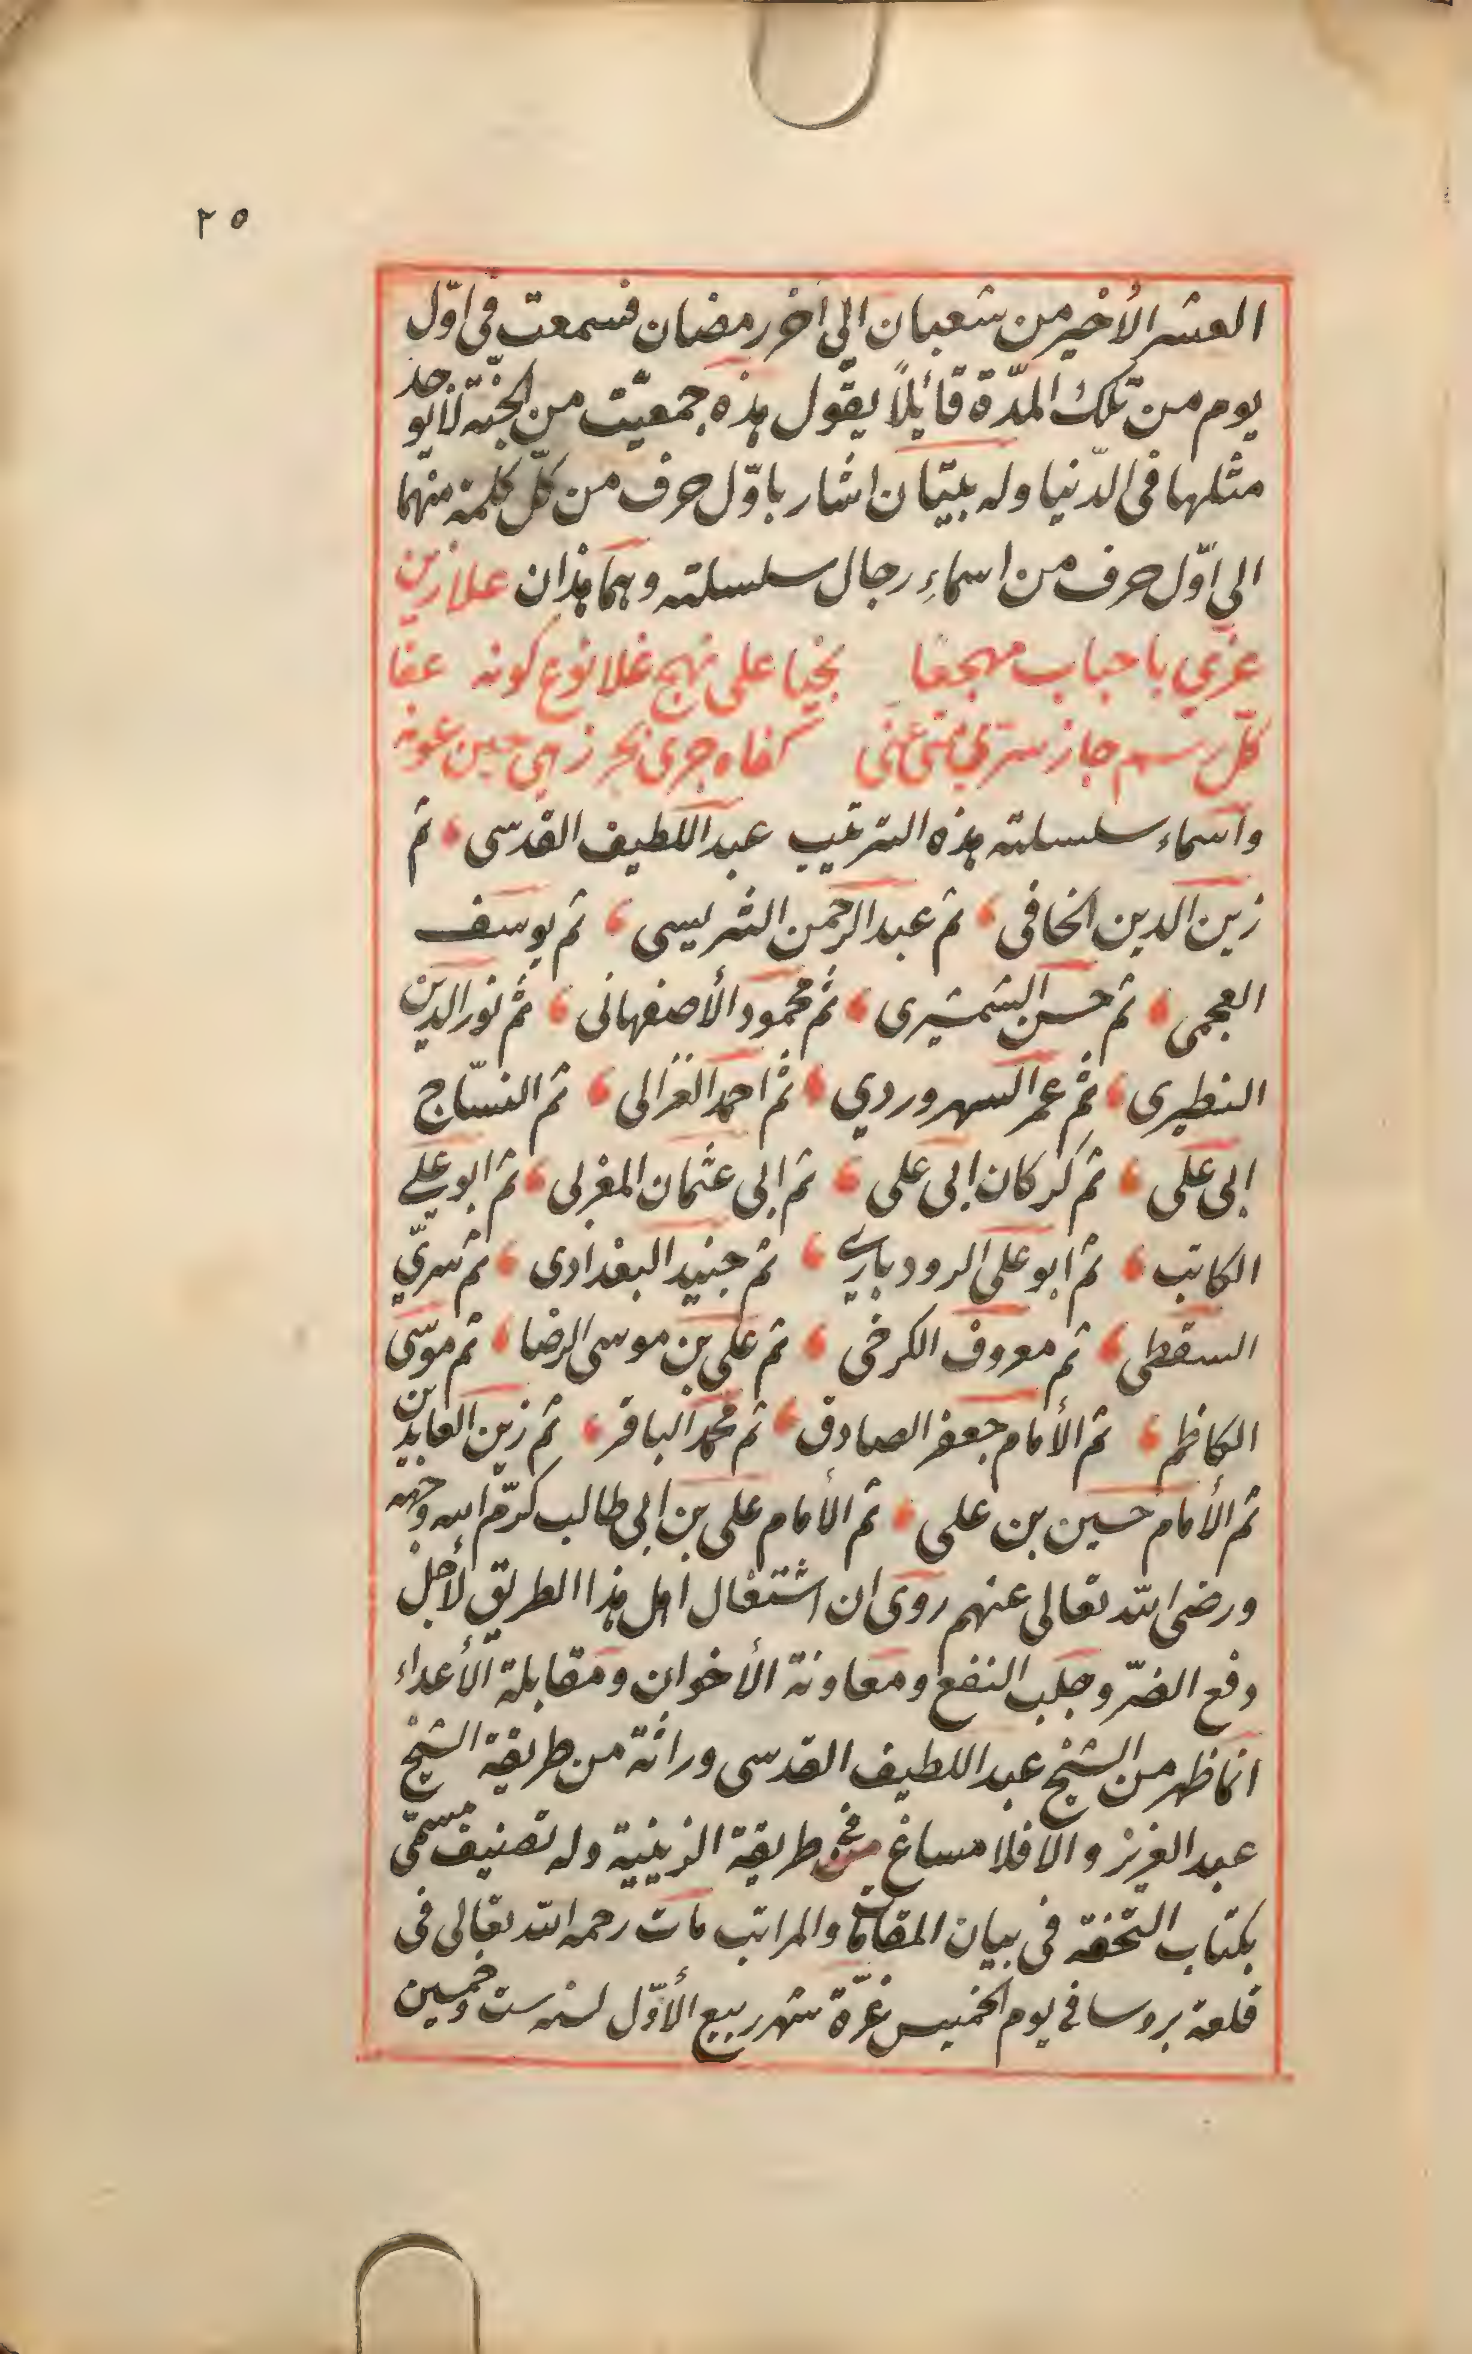 ٢٥
العشر الأخير من شعبان الى آخر رمضان فسمعت فى اوّل
يوم من تلك المدّة قائلاً يقول هذه جمعيّت من الجنّة لا يوجد
مثلها فى الدّنيا وله بيتان اشار باوّل حرف من كلّ كلمة منهما
الى اوّل حرف من اسماءِ رجال سلسلته وهما هذان علا زين
عزمي باحباب مهجعا بخيا على نهج علا نوع كونه عفا
كلّ رسم جاز سرّ كفاه جرى بحر زهى حين عونه
واسماء سلسلته هذه الترتيب عبد اللطيف القدسى ثم
زين الدين الخافى ثم عبد الرحمن الشريسى ثم يوسف
العجمى ثم حسن الشمشيرى ثم محمود الأصفهانى ثم نور الدين
النطيرى ثم عمر السهروردي ثم احمد الغزالى ثم النسّاج
ابى على ثم كركان ابى على ثم ابى عثمان المغربى ثم ابو على
الكاتب ثم ابو على الرودبارى ثم جنيد البغدادى ثم سريّ
السقطى ثم معروف الكرخى ثم على بن موسى الرضا ثم موسى
الكاظم ثم الأمام جعفر الصادق ثم محمد الباقر ثم زين العابدين
ثم الأمام حسين بن على ثم الأمام على بن ابى طالب كرّم الله وجهه
ورضى الله تعالى عنهم روى ان اشتغال اهل هذا الطريق لأجل
دفع الضرّ وجلب النفع ومعاونة الأخوان ومقابلة الأعداء
انما ظهر من الشيخ عبد اللطيف القدسى وراثة من طريقة الشيخ
عبد العزيز والا فلا مساغ فى طريقة الزينية وله تصنيف مسمّى
بكتاب التحفة فى بيان المقامات والمراتب مات رحمه الله تعالى فى
قلعة بروسا فى يوم الخميس غرّة شهر ربيع الأوّل لسنه ست وخمسين